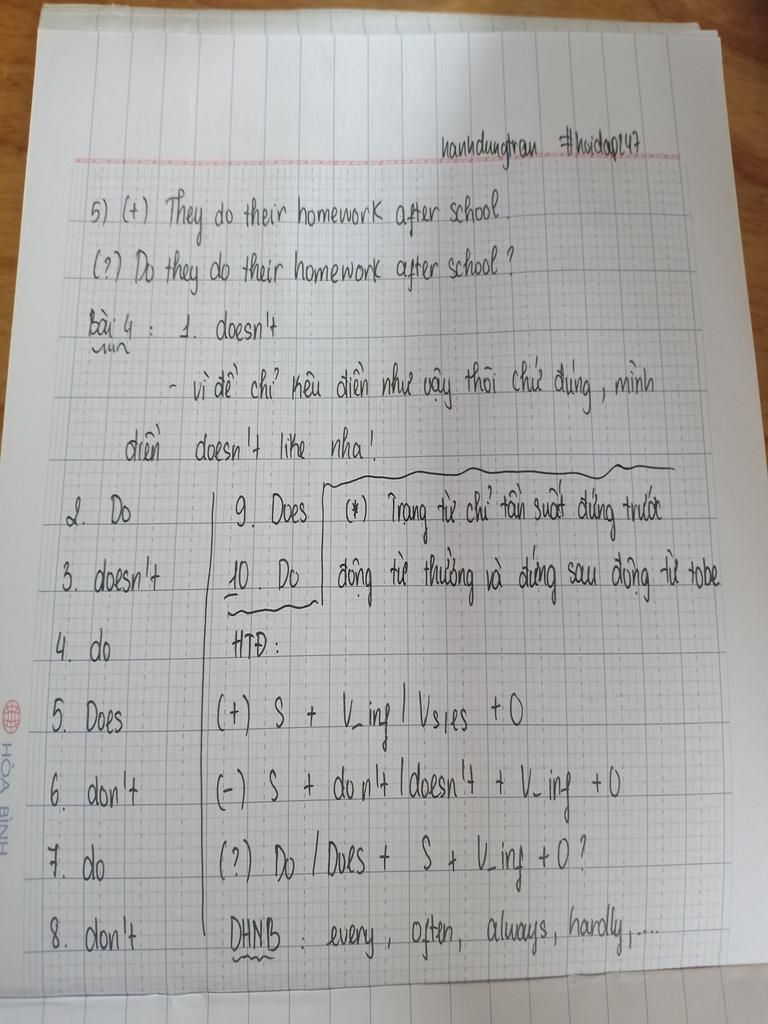 hanhdungtran #hoidap247
5) (+) They do their homework after school.
(?) Do they do their homework after school?
Bài 4 : 1. doesn't
- vì đề chỉ kêu điền như vậy thôi chứ đúng, mình
điền doesn't like nha!
2. Do
3. doesn't
4. do
5. Does
6. don't
7. do
8. don't
9. Does
10. Do
(*) Trạng từ chỉ tần suất đứng trước
động từ thường và đứng sau động từ tobe
HTĐ:
(+) S + V_ing / Vs/es + O
(-) S + don't / doesn't + V_ing + O
(?) Do / Does + S + V_ing + O?
DHNB : every, often, always, hardly,....
HÒA BÌNH